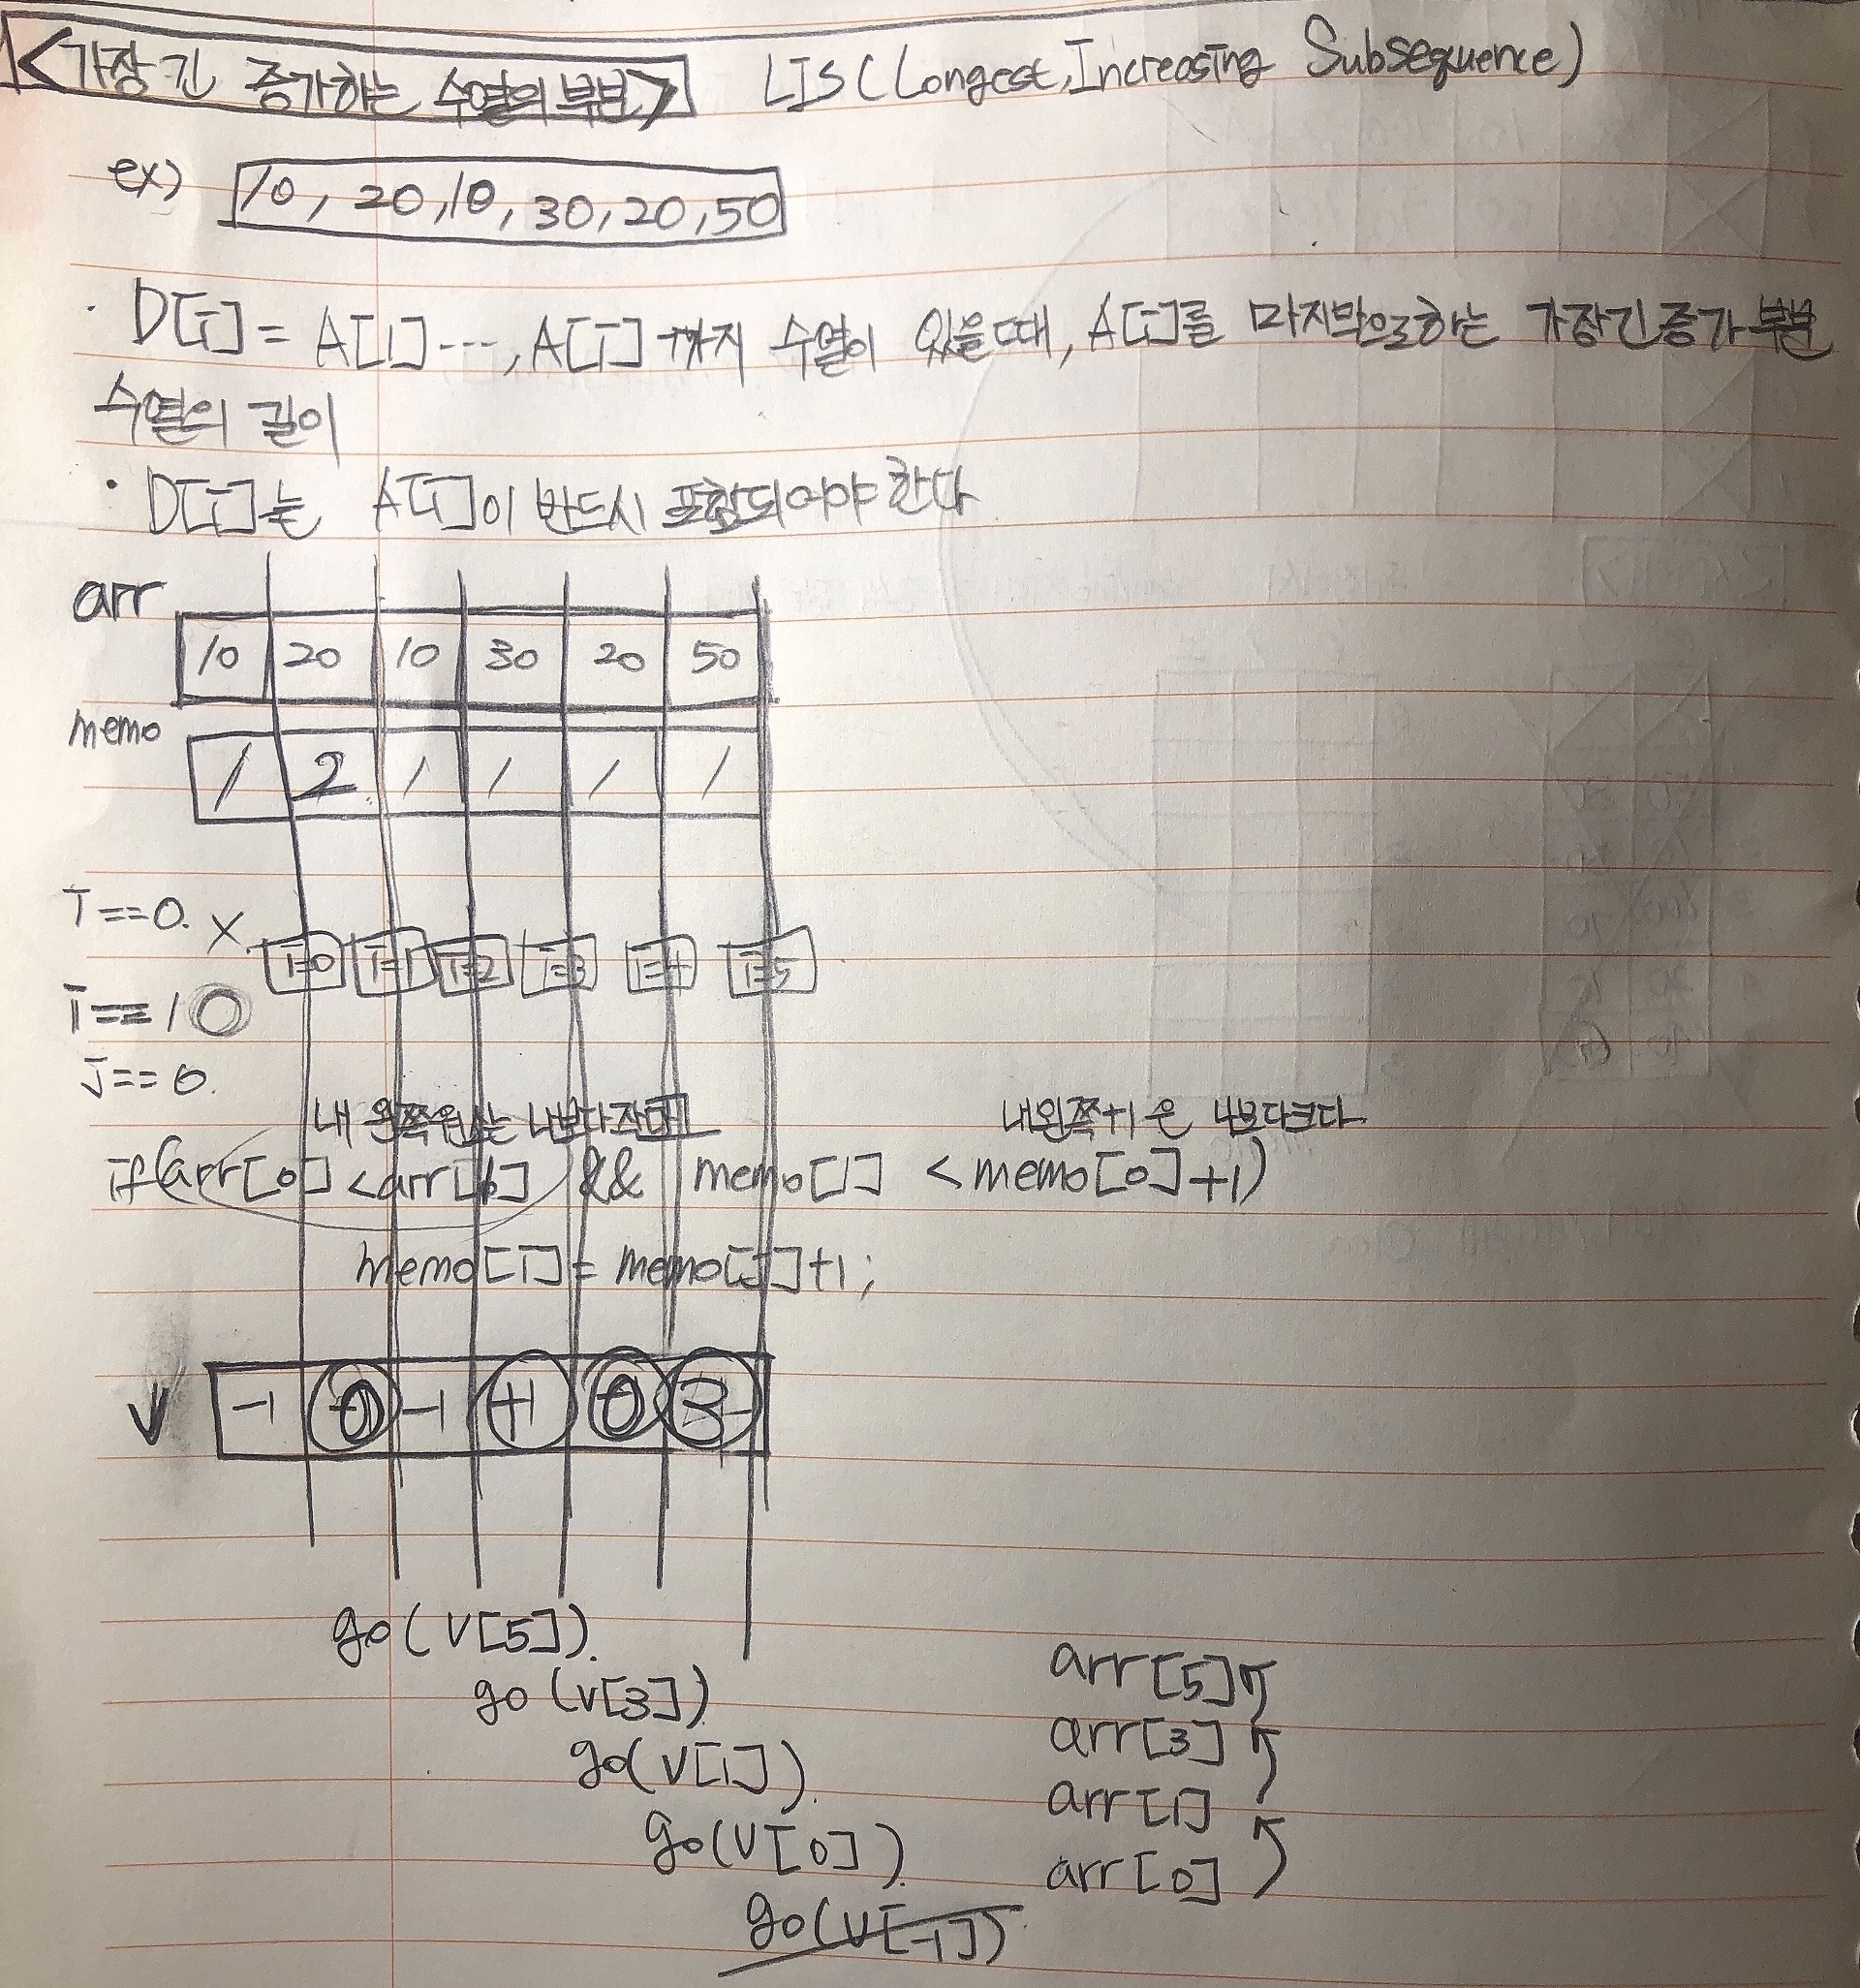 <가장 긴 증가하는 수열의 부분> LIS (Longest Increasing Subsequence)
ex) 10, 20, 10, 30, 20, 50
· D[i] = A[1] ---, A[i] 까지 수열이 있을때, A[i]를 마지막으로하는 가장긴증가 부분
수열의 길이
· D[i]는 A[i]이 반드시 포함되어야 한다
arr
10 20 10 30 20 50
memo
1 2 1 1 1 1
i==0. X
i=0 i=1 i=2 i=3 i=4 i=5
i==1 O
J==0.
내 왼쪽원소는 나보다작다 내왼쪽+1은 나보다크다
if(arr[0] <arr[1] && memo[1] <memo[0]+1)
memo[i] = memo[j]+1;
V -1 0 -1 +1 0 3
go(V[5]).
go(V[3]).
go(V[1]).
go(V[0]).
go(V[-1])
arr[5]
arr[3]
arr[1]
arr[0]